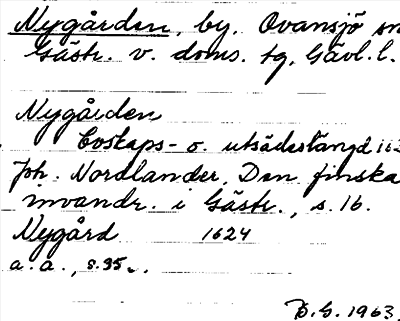 Nygården, by, Ovansjö sn
Gästr. v. doms. tg, Gävl. l.
Nygården
Boskaps- o. utsädeslängd
Joh. Nordlander, Den finska
invandr. i Gästr., s. 16.
Nygård 1624
a. a., s. 35.
1963.